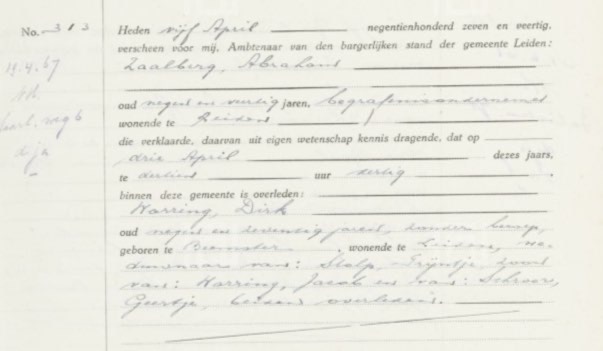 No. 313
Heden vijf April negentienhonderd zeven en veertig,
verscheen voor mij, Ambtenaar van den burgerlijken stand der gemeente Leiden:
Zaalberg, Abraham
oud negen en veertig jaren, begrafenisondernemer
wonende te Leiden
die verklaarde, daarvan uit eigen wetenschap kennis dragende, dat op
drie April dezes jaars,
te dertien uur dertig,
binnen deze gemeente is overleden:
Karring, Dirk
oud negen en zeventig jaren, zonder beroep,
geboren te Beemster, wonende te Leiden, we-
duwnaar van: Stolp, Trijntje, zoon
van: Karring, Jacob en van: Schroor,
Geertje, beiden overleden.